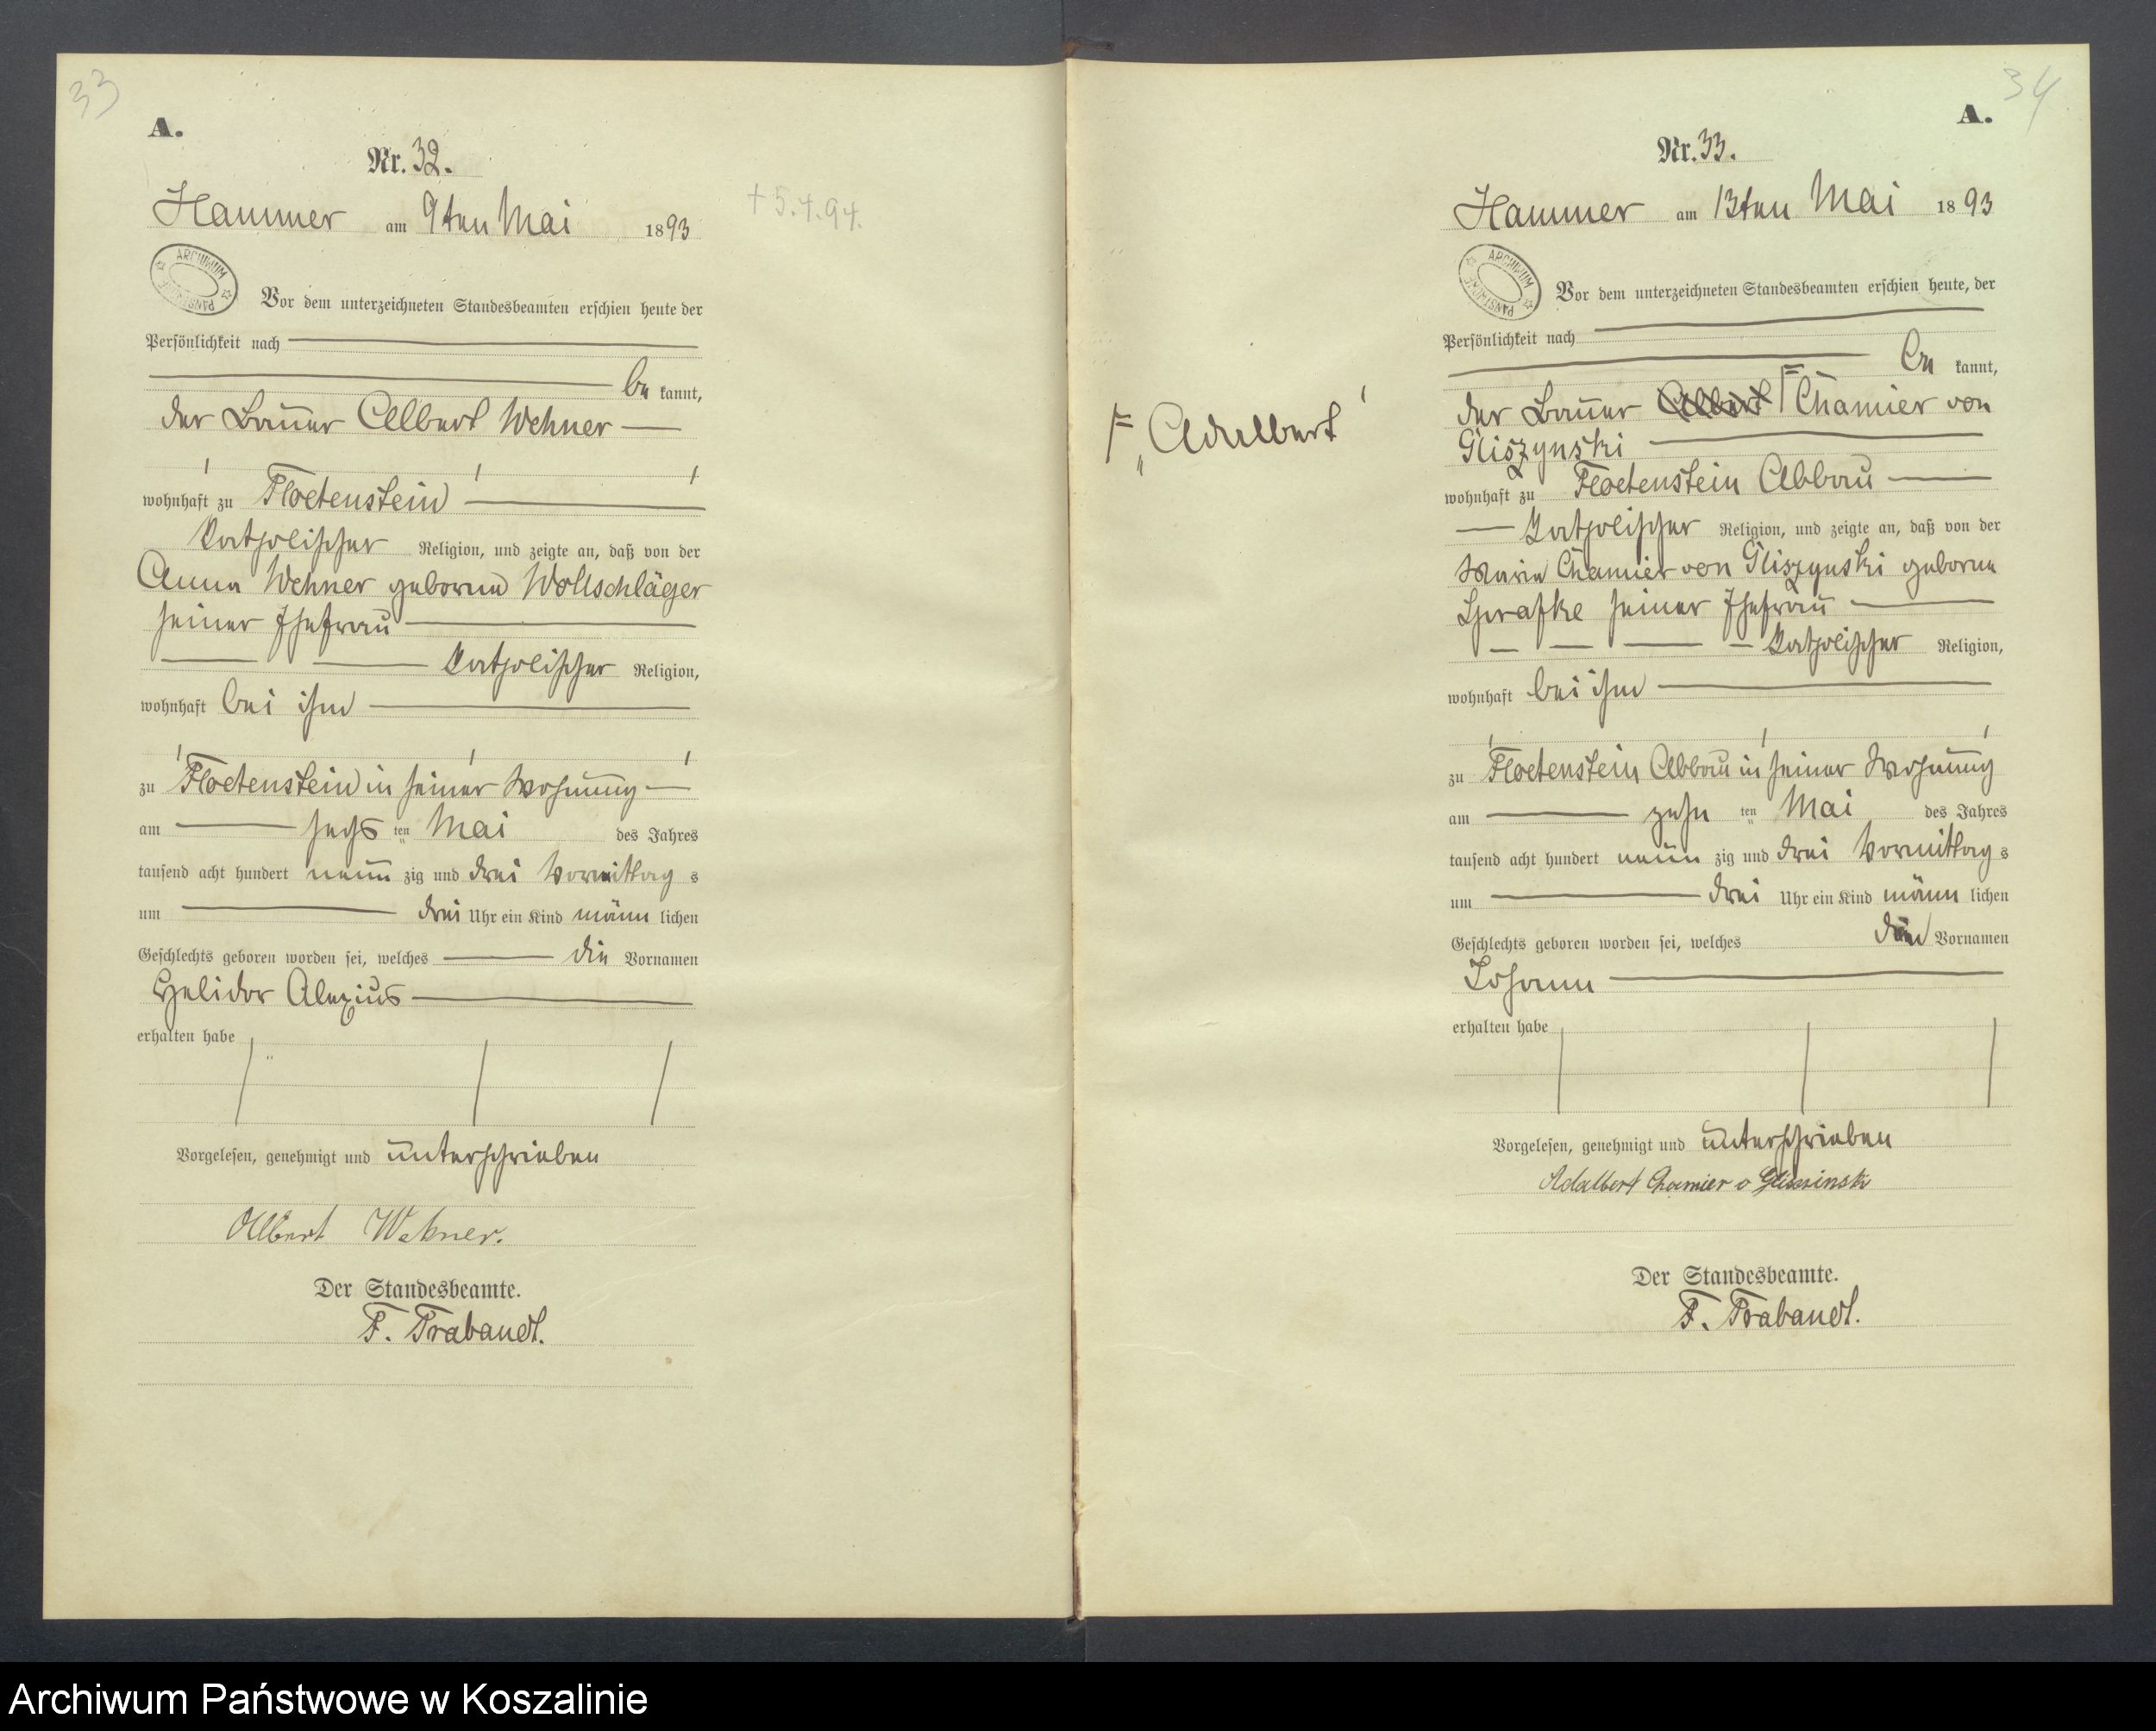 33
A.
Nr. 32.
Hammer am 9ten Mai 1893
+ 5.4.94.
ARCHIWUM PAŃSTWOWE
Vor dem unterzeichneten Standesbeamten erschien heute der
Persönlichkeit nach
be kannt,
der Bauer Albert Wehner
wohnhaft zu Floetenstein
katholischer Religion, und zeigte an, daß von der
Anna Wehner geborne Wollschläger
seiner Ehefrau
katholischer Religion,
wohnhaft bei ihm
zu Floetenstein in seiner Wohnung
am sechs ten Mai des Jahres
tausend acht hundert neun zig und drei Vormittag s
um drei Uhr ein Kind männ lichen
Geschlechts geboren worden sei, welches die Vornamen
Helidor Alexius
erhalten habe
Vorgelesen, genehmigt und unterschrieben
Albert Wehner.
Der Standesbeamte.
F. Trabandt.
34
A.
Nr. 33.
Hammer am 13ten Mai 1893
ARCHIWUM PAŃSTWOWE
Vor dem unterzeichneten Standesbeamten erschien heute, der
Persönlichkeit nach
be kannt,
der Bauer Albert Ⱶ Chamier von
Ⱶ „Adalbert'
Gliszynski
wohnhaft zu Floetenstein Abbau
katholischer Religion, und zeigte an, daß von der
Maria Chamier von Gliszynski geborne
seiner Ehefrau
katholischer Religion,
wohnhaft bei ihm
zu Floetenstein Abbau in seiner Wohnung
am zehn ten Mai des Jahres
tausend acht hundert neun zig und drei Vormittag s
um drei Uhr ein Kind männ lichen
Geschlechts geboren worden sei, welches den Vornamen
Johann
erhalten habe
Vorgelesen, genehmigt und unterschrieben
Adalbert Chamier v Gliszinski
Der Standesbeamte.
F. Trabandt.
Archiwum Państwowe w Koszalinie